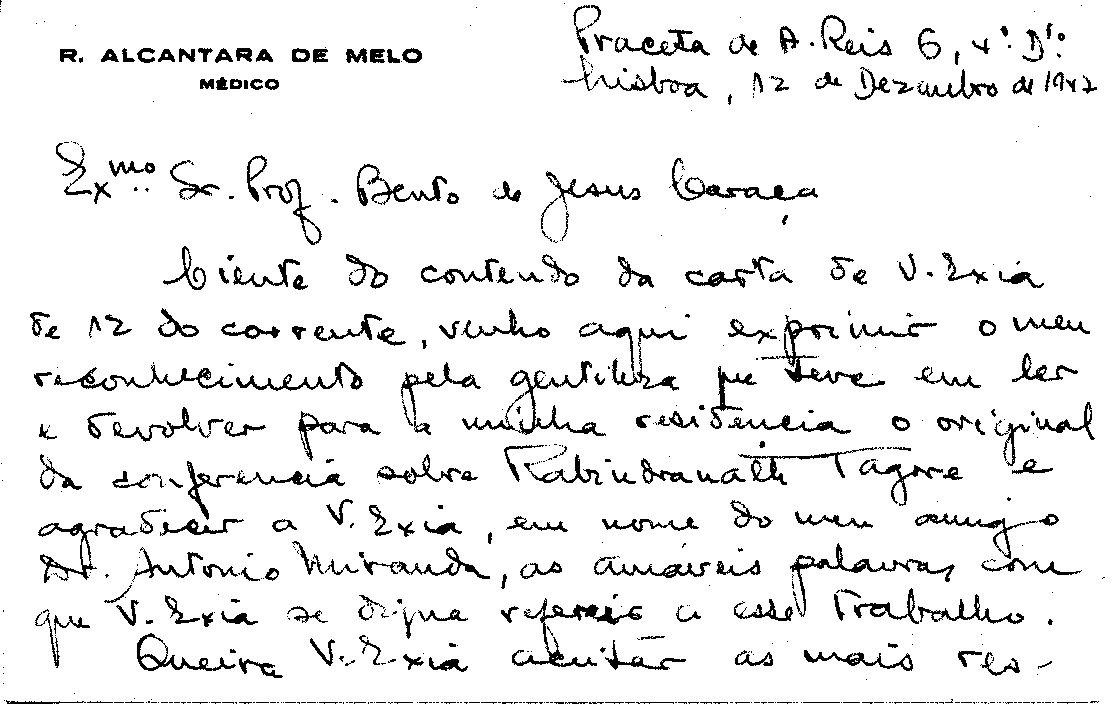 R. ALCANTARA DE MELO
MÉDICO
Praceta de A. Reis 6, 4º. Dto.
Lisboa, 12 de Dezembro de 1947
Exmo. Sr. Prof. Bento de Jesus Caraça
Ciente do conteudo da carta de V. Exia
de 12 do corrente, venho aqui exprimir o meu
reconhecimento pela gentileza que teve em ler
e devolver para a minha residência o original
da conferencia sobre Rabindranath Tagore e
agradecer a V. Exia, em nome do meu amigo
Dr. Antonio Miranda, as amáveis palavras com
que V. Exia se digna referir a esse trabalho.
Queira V. Exia aceitar as mais res-